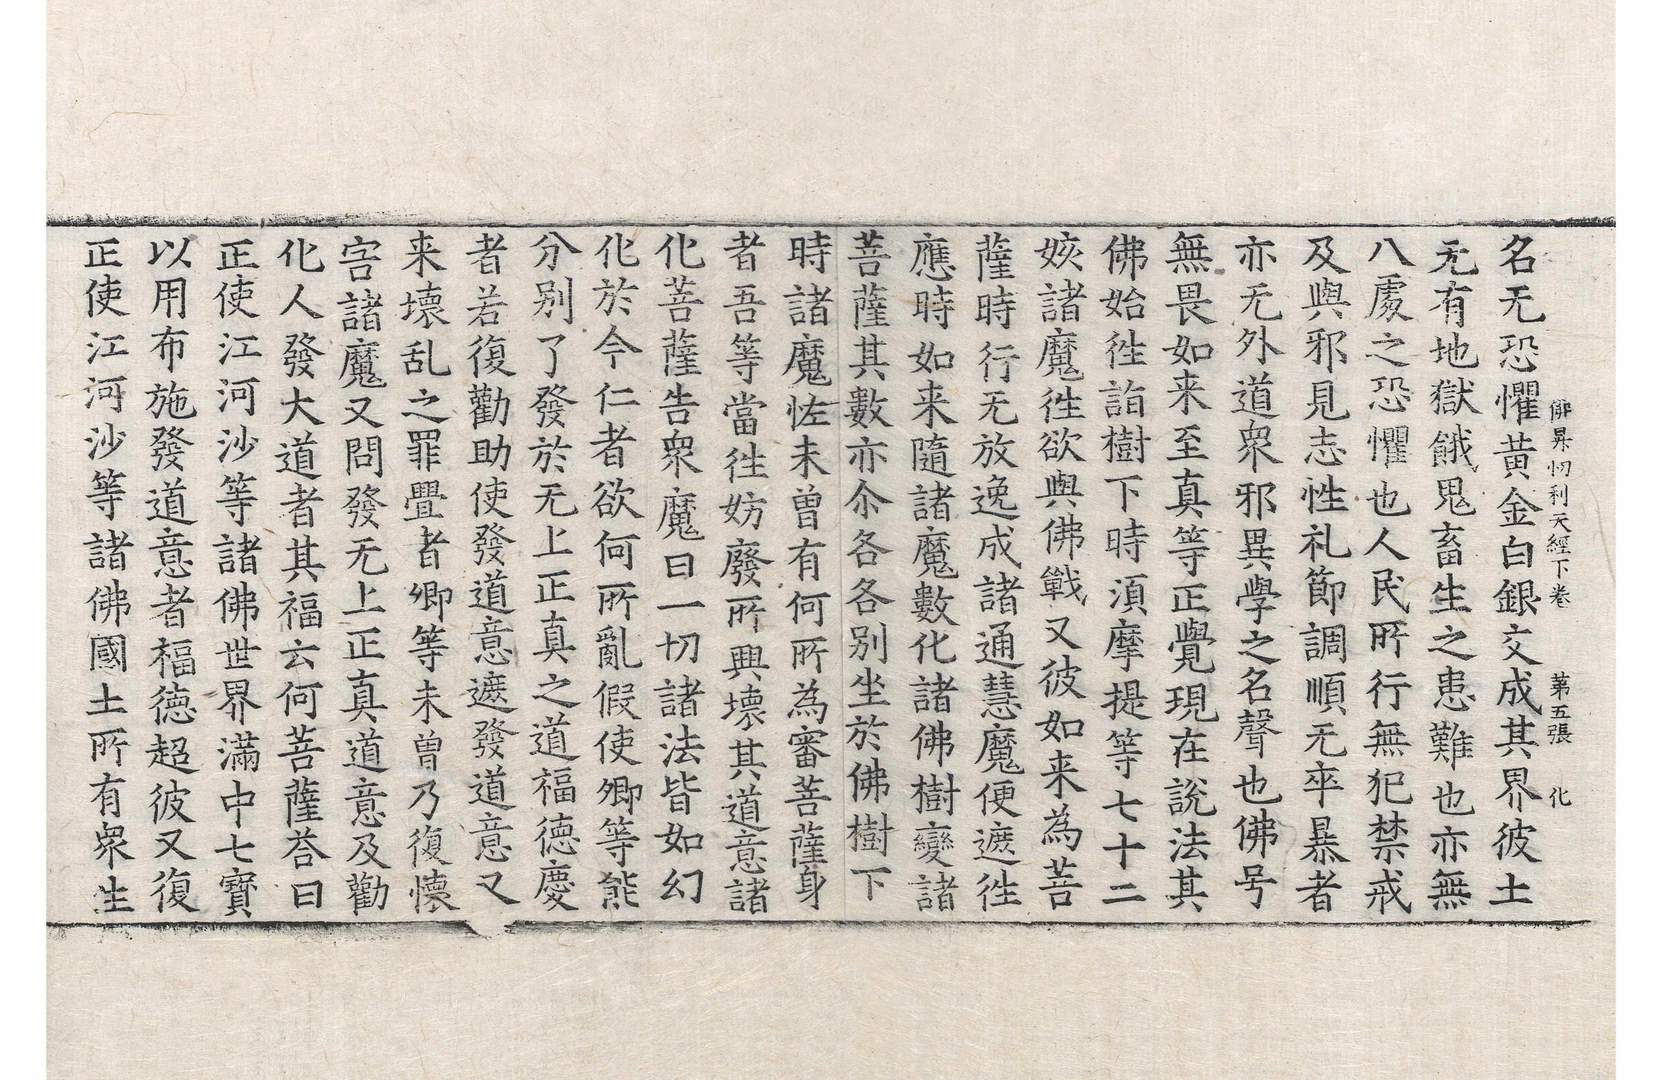 佛昇忉利天經下卷 第五張 化
名无恐懼黃金白銀交成其界彼土
无有地獄餓鬼畜生之患難也亦無
八處之恐懼也人民所行無犯禁戒
及與邪見志性礼節調順无卒暴者
亦无外道衆邪異學之名聲也佛号
無畏如来至真等正覺現在說法其
佛始往詣樹下時須摩提等七十二
姟諸魔往欲與佛戰又彼如来為菩
薩時行无放逸成諸通慧魔便遮往
應時如来隨諸魔數化諸佛樹變諸
菩薩其數亦尒各各别坐於佛樹下
時諸魔恠未曾有何所為審菩薩身
者吾等當往妨廢所興壞其道意諸
化菩薩告衆魔曰一切諸法皆如幻
化於今仁者欲何所亂假使卿等能
分别了發於无上正真之道福德慶
者若復勸助使發道意遮發道意又
来壞乱之罪舋者卿等未曾乃復懷
害諸魔又問發无上正真道意及勸
化人發大道者其福云何菩薩荅曰
正使江河沙等諸佛世界滿中七寶
以用布施發道意者福德超彼又復
正使江河沙等諸佛國土所有衆生